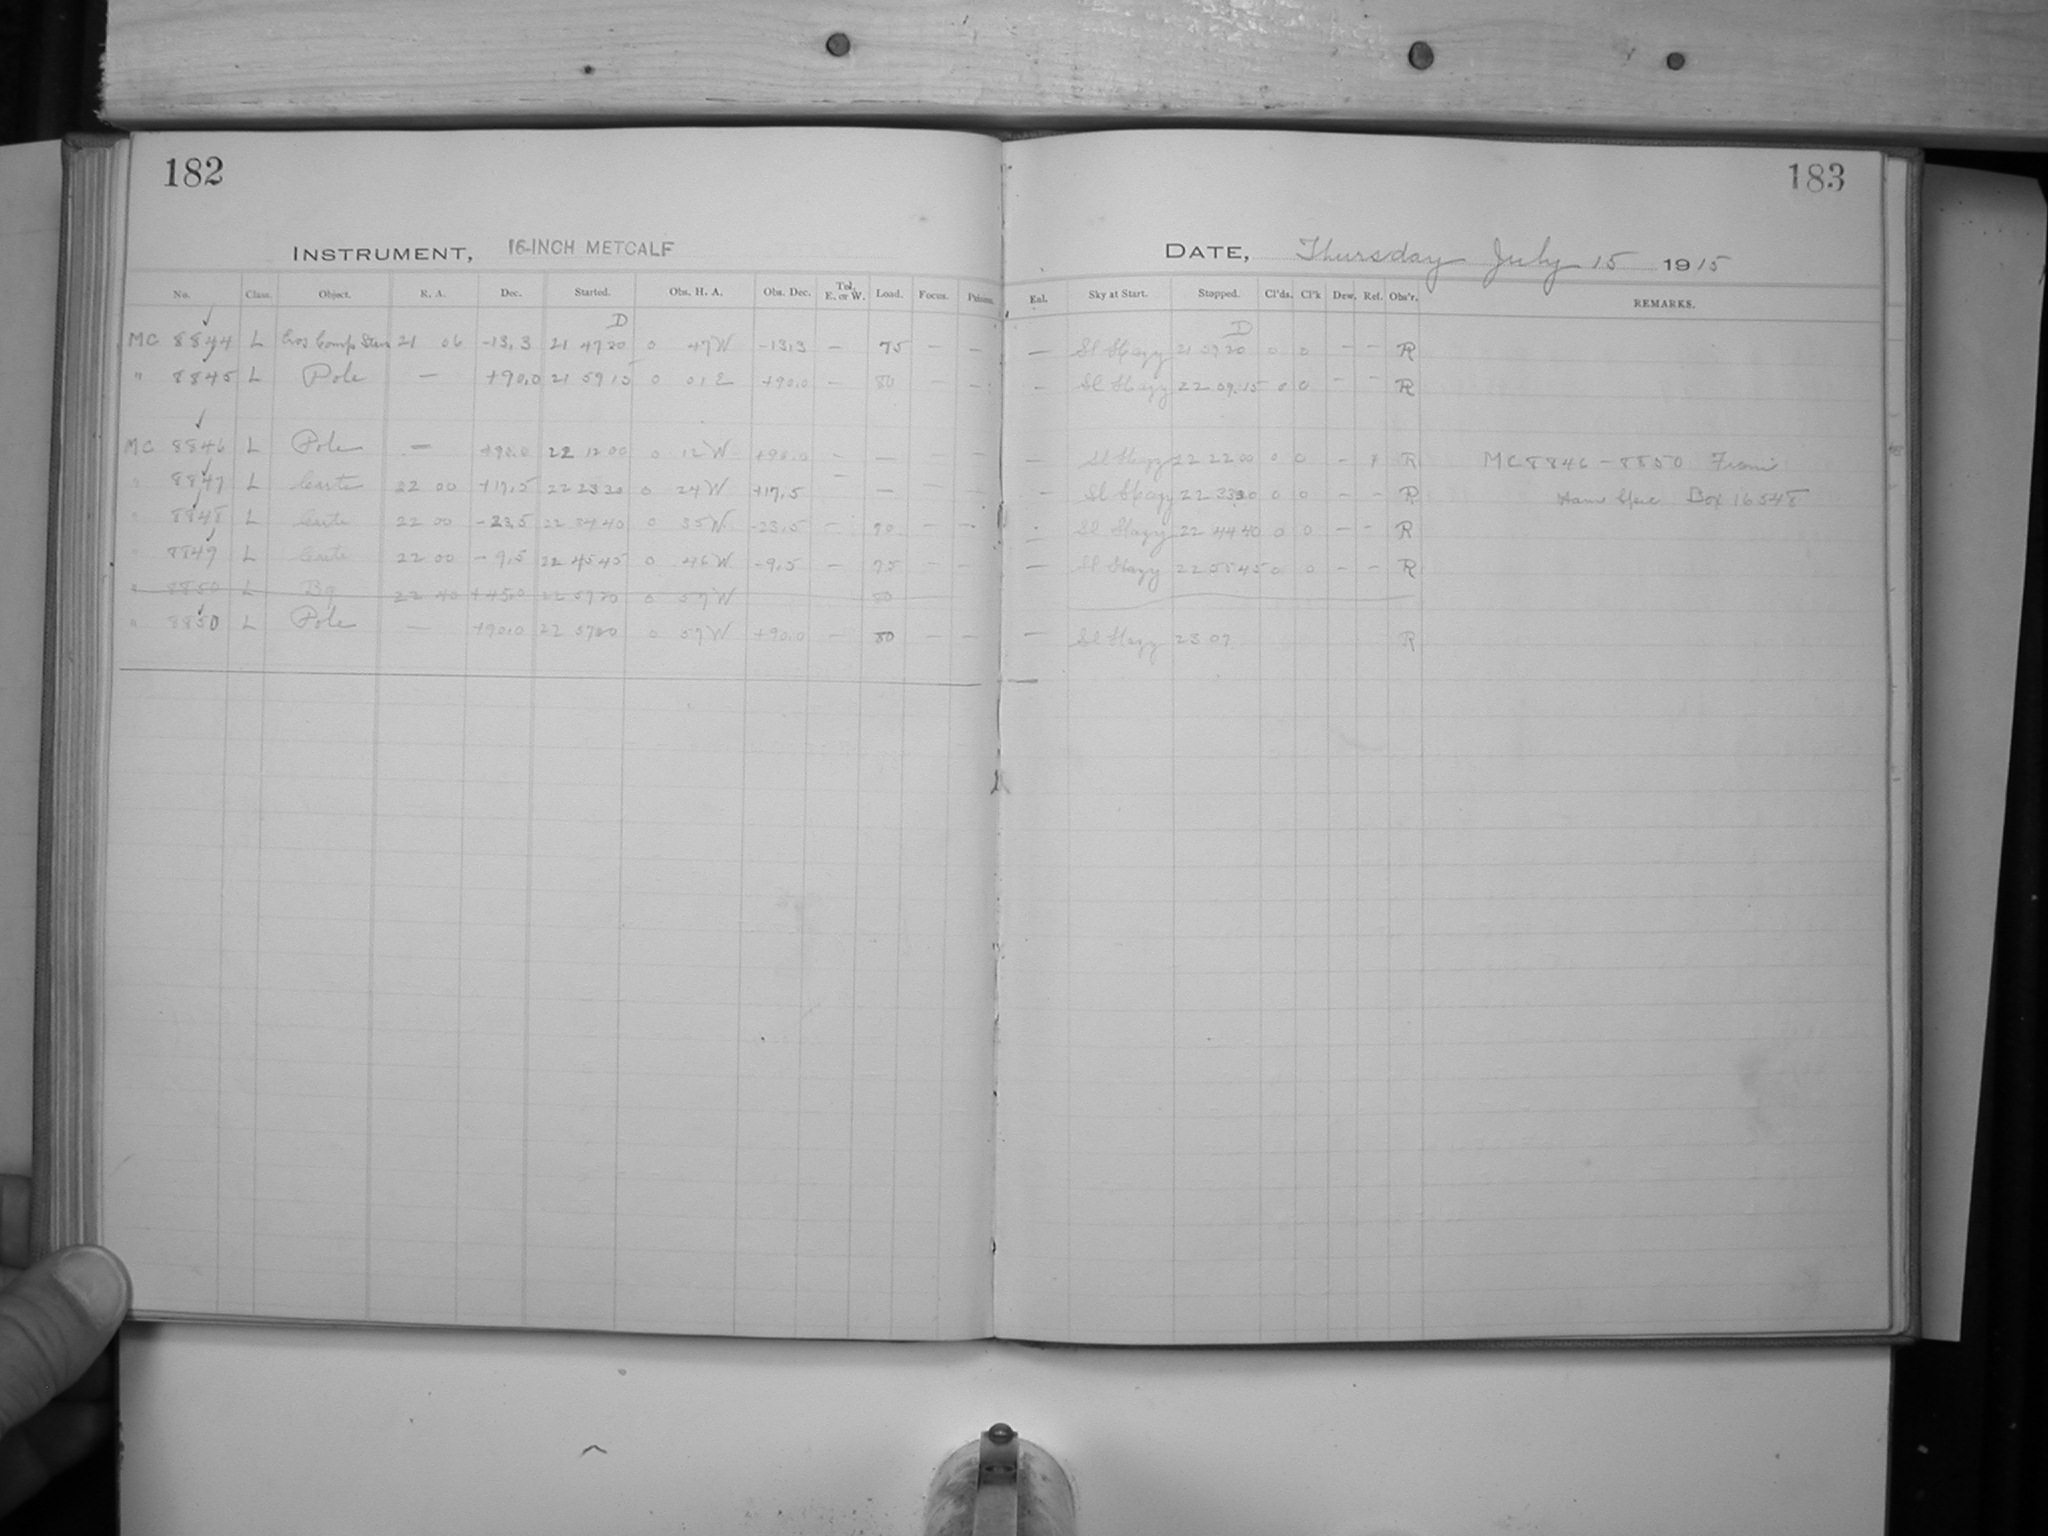 182
183
INSTRUMENT, 16-INCH METCALF
DATE, Thursday July 15 1915
No. Class. Object. R. A. Dec. Started. Obs. H. A. Obs. Dec. Tel. E. or W. Load. Focus. Prisms. Eal. Sky at Start. Stopped. Cl'ds. Cl'k Dew. Ref. Obs'r. REMARKS.
D D
MC 8844 L Eros Comp Stars 21 06 -13.3 21 47 20 0 47 W -13.3 — 75 — — — Sl Hazy 21 57 20 0 0 — — R
" 8845 L Pole — +90.0 21 59 15 0 01 E +90.0 — 80 — — — Sl Hazy 22 09 15 0 0 — — R
MC 8846 L Pole — +90.0 22 12 00 0 12 W +90.0 — — — — — Sl Hazy 22 22 00 0 0 — R MC 8846 - 8850 From
" 8847 L Carte 22 00 +17.5 22 23 20 0 24 W +17.5 — — — — — Sl Hazy 22 33 20 0 0 — — R Box 16548
" 8848 L Carte 22 00 -23.5 22 34 40 0 35 W -23.5 — 70 — — — Sl Hazy 22 44 40 0 0 — — R
" 8849 L Carte 22 00 -9.5 22 45 45 0 46 W -9.5 — 75 — — — Sl Hazy 22 55 45 0 0 — — R
" 8850 L Bq 22 40 +45.0 22 57 20 0 57 W 80
" 8850 L Pole — +90.0 22 57 20 0 57 W +90.0 — 80 — — — Sl Hazy 23 07 R